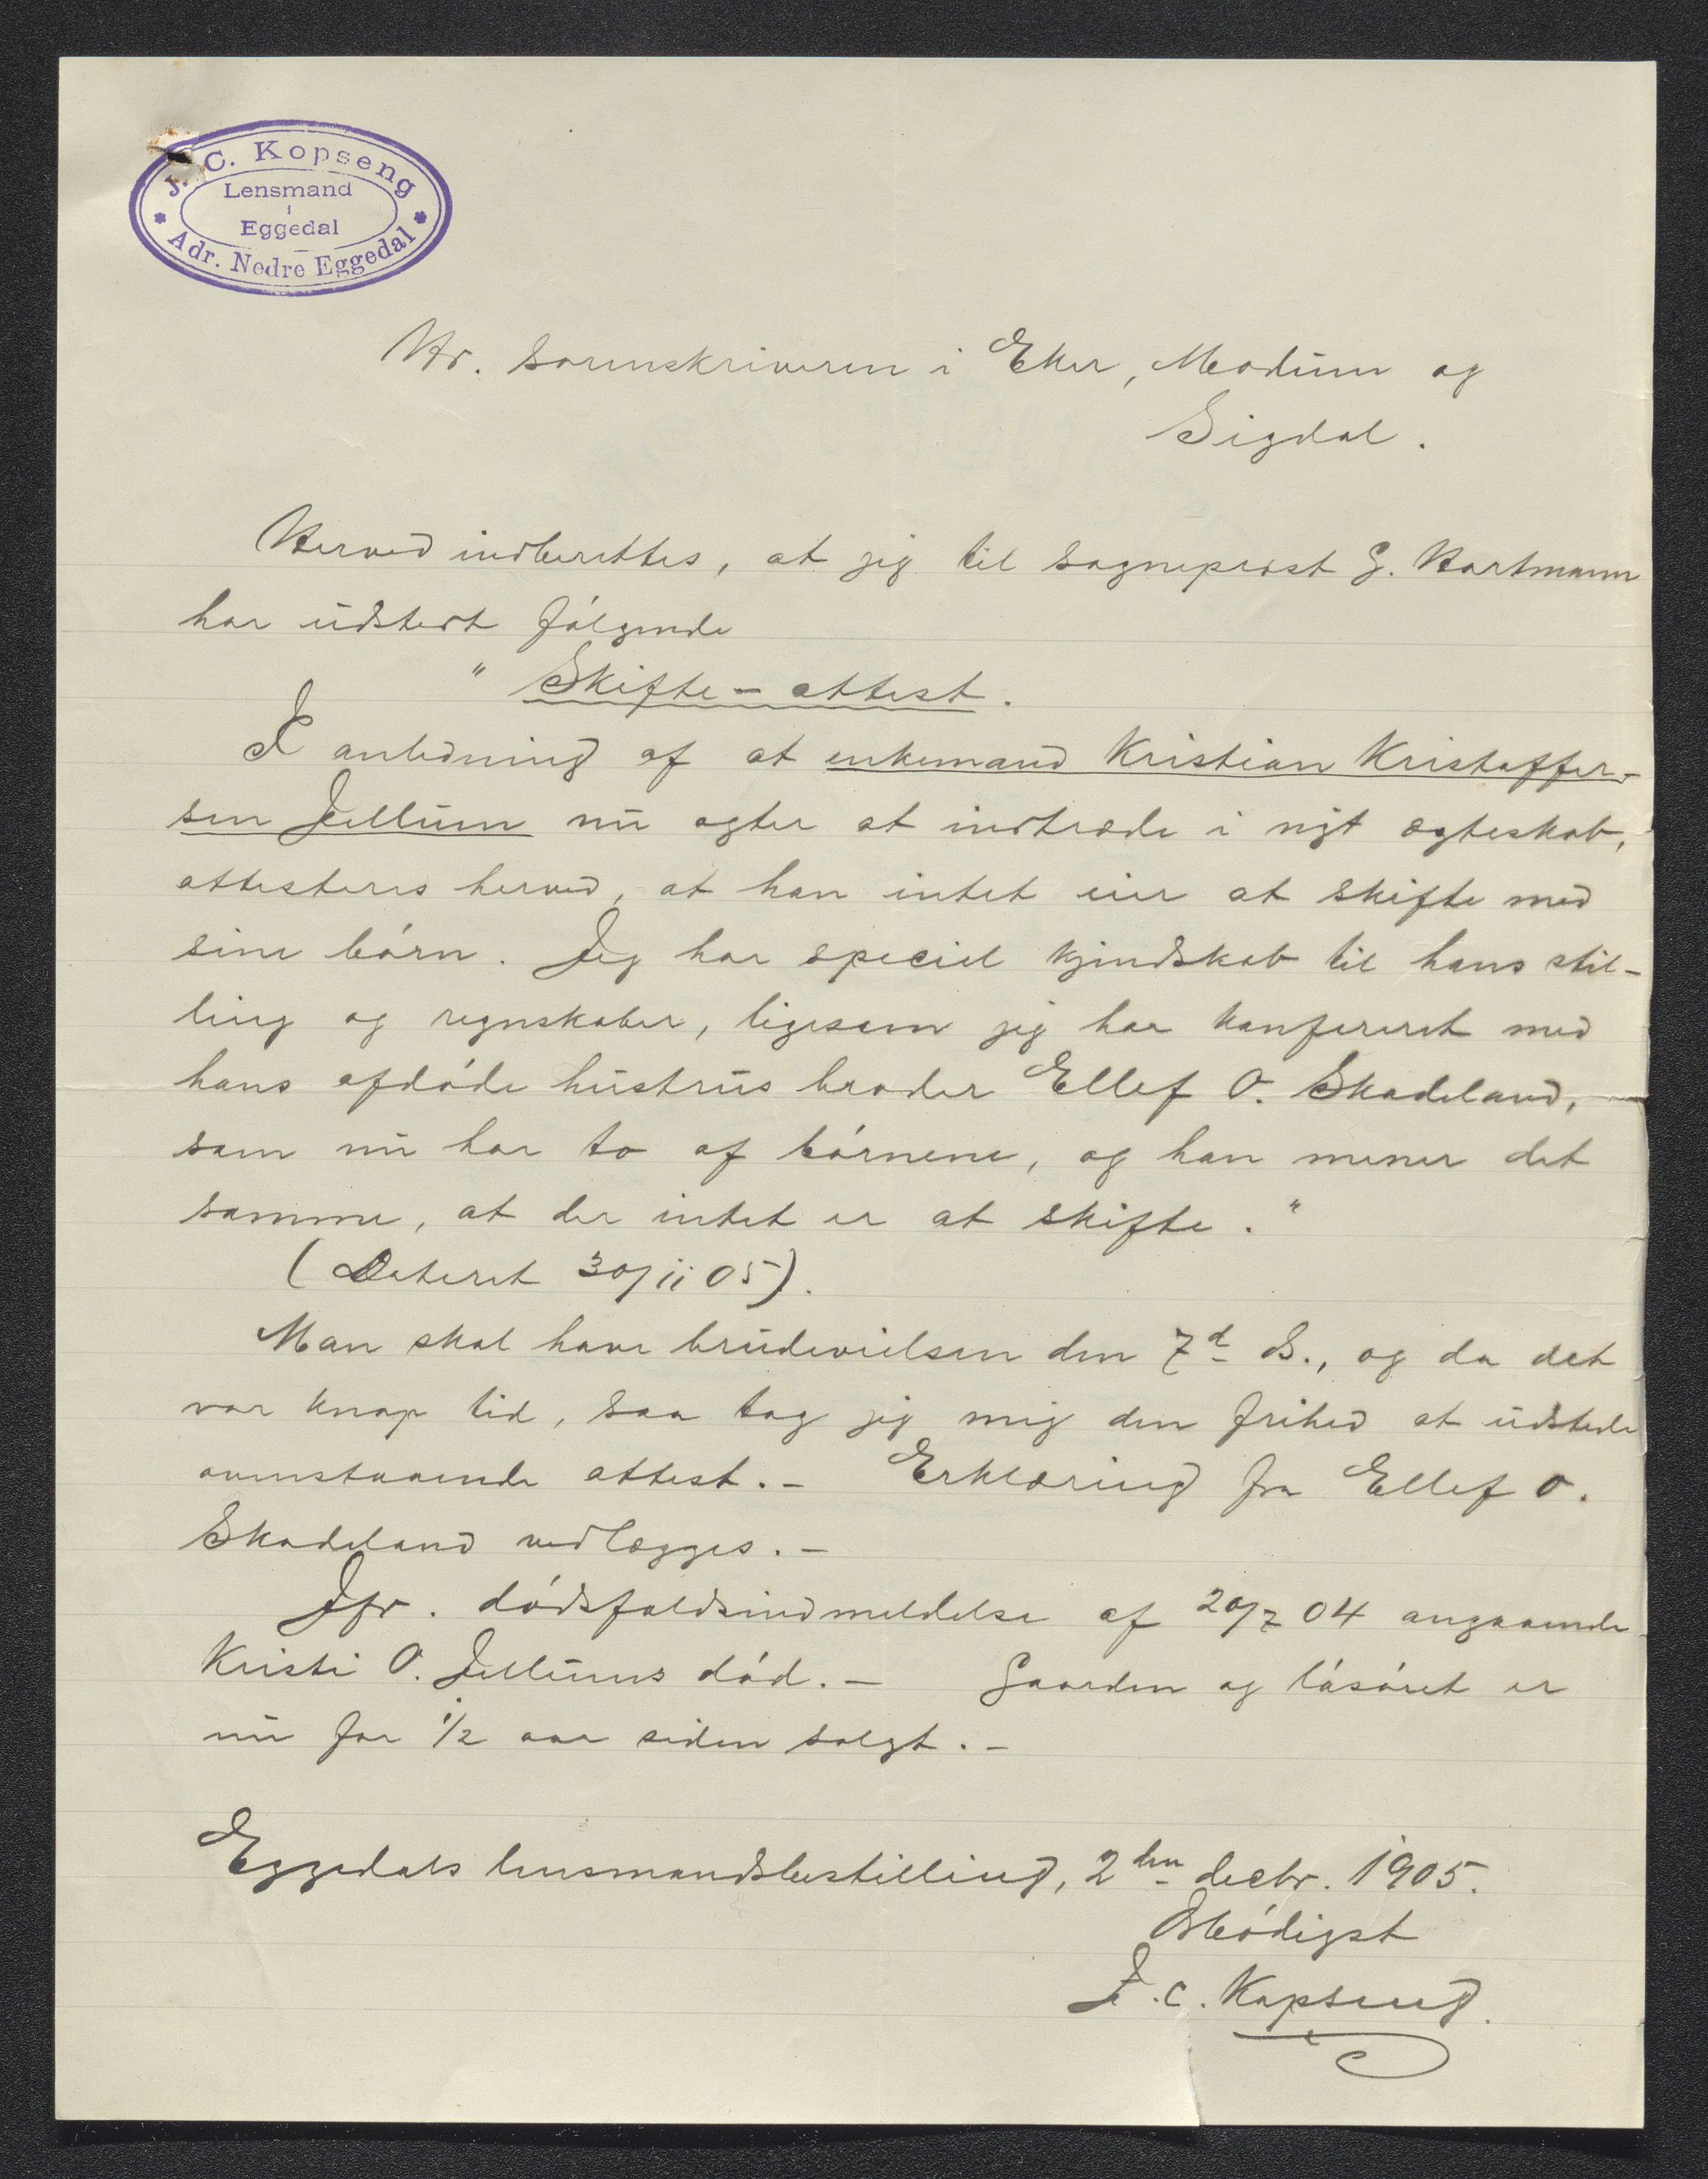 J. C. Kopseng
Lensmand
i
Eggedal
Adr. Nedre Eggedal
Hr. Sorenskriveren i Eker, Modum og
Sigdal.
Herved indberettes, at jeg til sogneprest G. Hartmann
har udstedt følgende
" Skifte-attest.
I anledning af at enkemand Kristian Kristoffer-
sen Jellum nu agter at indtræde i nyt ægteskab,
attesteres herved, at han intet eier at skifte med
sine børn. Jeg har speciel kjendskab til hans stil-
ling og regnskaber, ligesom jeg har konfereret med
hans afdøde hustrus broder Ellef O. Skadeland,
som nu har to af børnene, og han mener det
samme, at der intet er at skifte."
(Dateret 30/11 05).
Man skal have brudevielsen den 7d ds., og da det
var knap tid, saa tog jeg mig den frihed at udstede
ovenstaaende attest.- Erklæring fra Ellef O.
Skadeland vedlægges.-
Jfr. dødsfaldsindmeldelse af 20/7 04 angaaende
Kristi O. Jellums død.- Gaarden og løsøret er
nu for 1/2 aar siden solgt.-
Eggedals lensmandsbestilling, 2den decbr. 1905.
Ærbødigst
J. C. Kopseng.